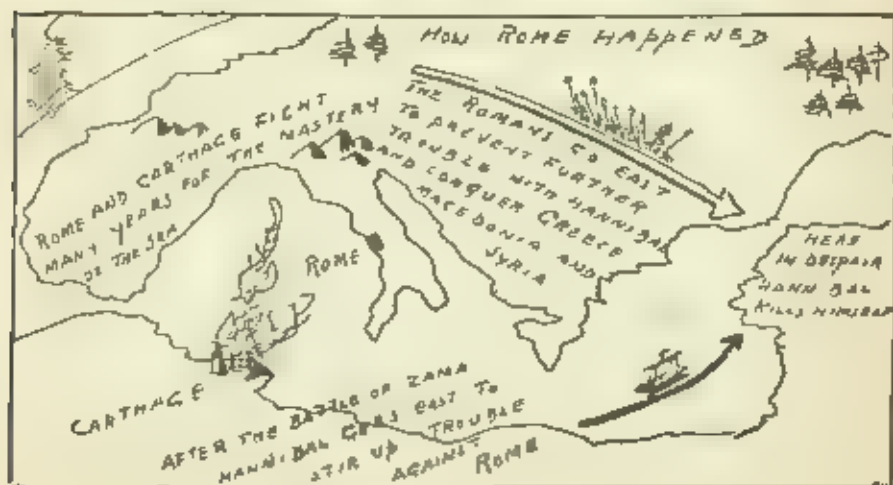 HOW ROME HAPPENED
ROME AND CARTHAGE FIGHT
MANY YEARS FOR THE MASTERY
OF THE SEA
THE ROMANS GO EAST
TO PREVENT FURTHER
TROUBLE WITH HANNIBAL
AND CONQUER GREECE
MACEDONIA AND
SYRIA
HERE
IN DESPAIR
HANNIBAL
KILLS HIMSELF
ROME
CARTHAGE
AFTER THE BATTLE OF ZAMA
HANNIBAL GOES EAST TO
STIR UP TROUBLE
AGAINST ROME